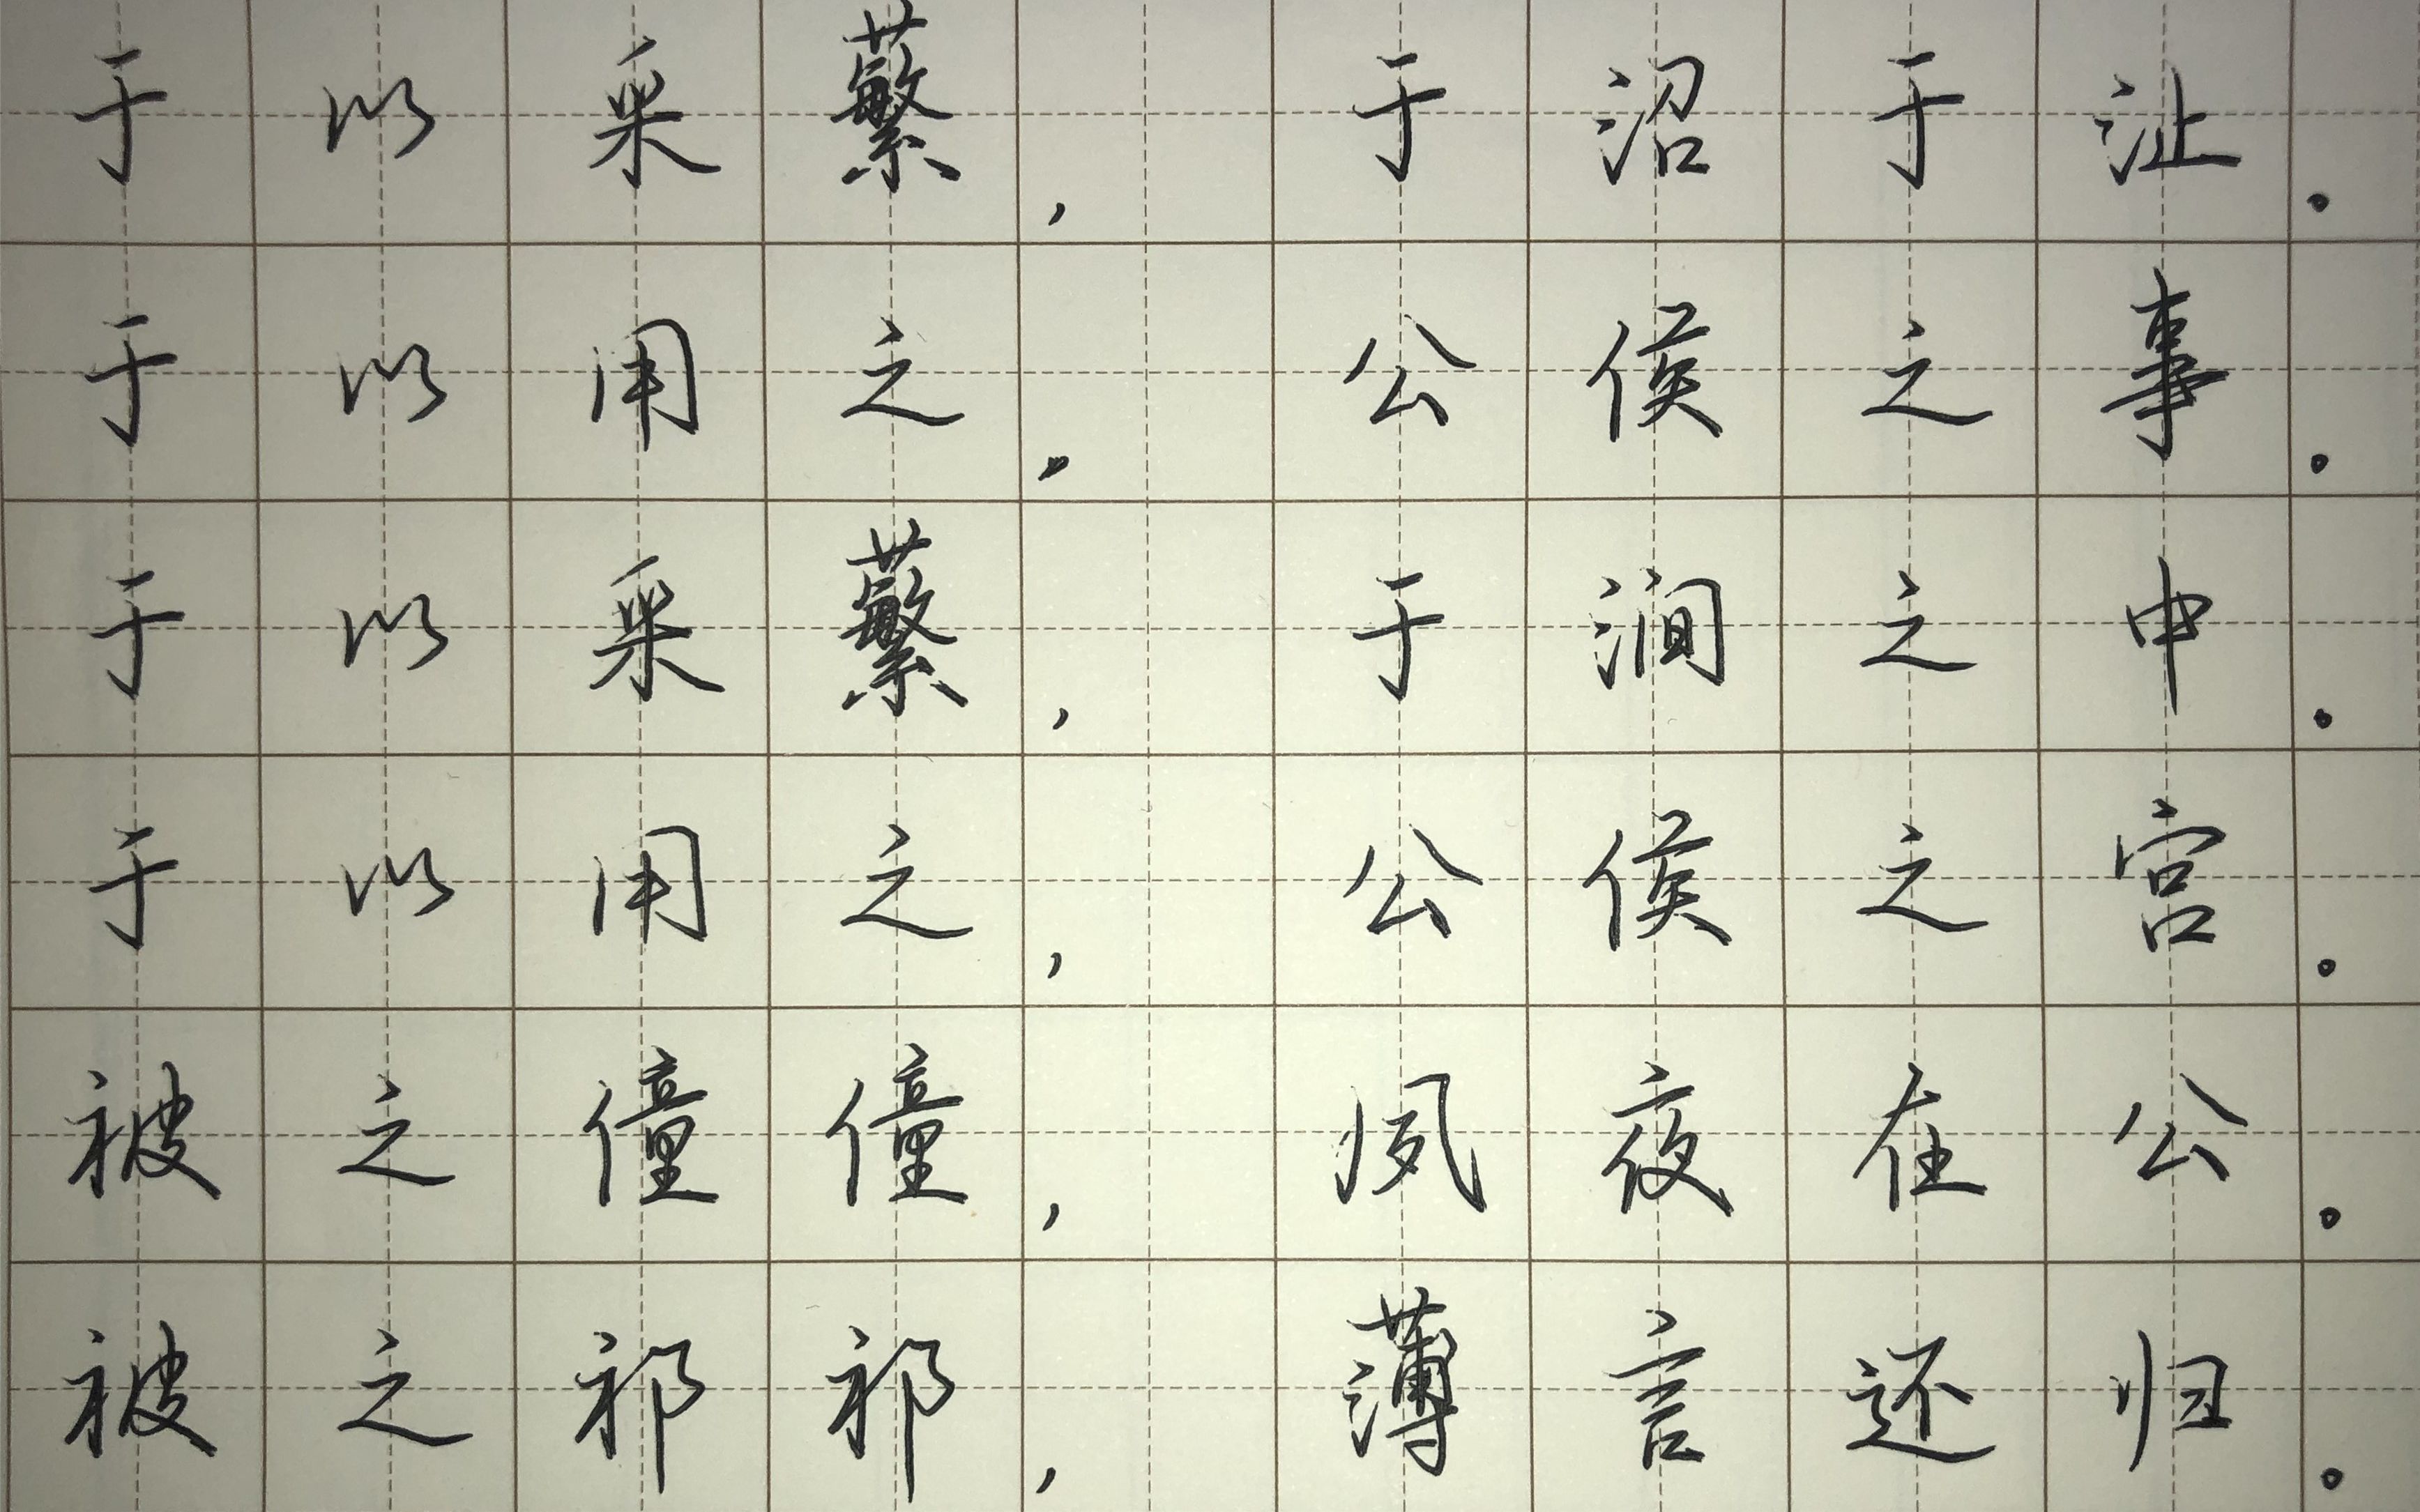 于以采蘩，于沼于沚。
于以用之，公侯之事。
于以采蘩，于涧之中。
于以用之，公侯之宫。
被之僮僮，夙夜在公。
被之祁祁，薄言还归。